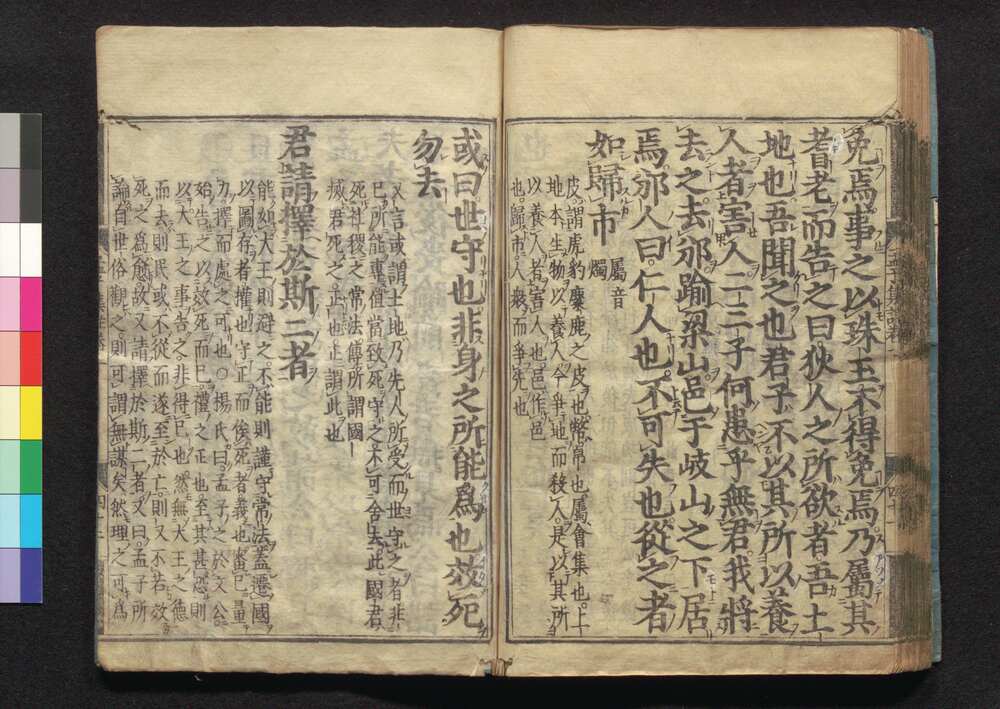 免焉事之以珠玉不得免焉乃屬其
耆老而告之曰狄人之所欲者吾土
地也吾聞之也君子不以其所以養
人者害人二三子何患乎無君我將
去之去邠踰梁山邑于岐山之下居
焉邠人曰仁人也不可失也從之者
如歸市 屬音
燭
皮謂虎豹麋鹿之皮也幣帛也屬會集也上
地本生物以養人今爭地而殺人是以其所
以養人者害人也邑作邑
也歸市人衆而爭先也
或曰世守也非身之所能爲也效死
勿去
又言或謂土地乃先人所受而世守之者非
己所能專但當致死守之不可舍去此國君
死社稷之常法傳所謂國
滅君死之正也正謂此也
君請擇於斯二者
能如大王則避之不能則謹守常法蓋遷國
以圖存者權也守正而俟死者義也審己量
力擇而處之可也○楊氏曰孟子之於文公
始告之以效死而已禮之正也至其甚恐則
以大王之事告之非得已也然無大王之德
而去則民或不從而遂至於亡則又不若效
死之爲愈故又請於斯二者又曰孟子所
論自世俗觀之則可謂無謀矣然理之可爲